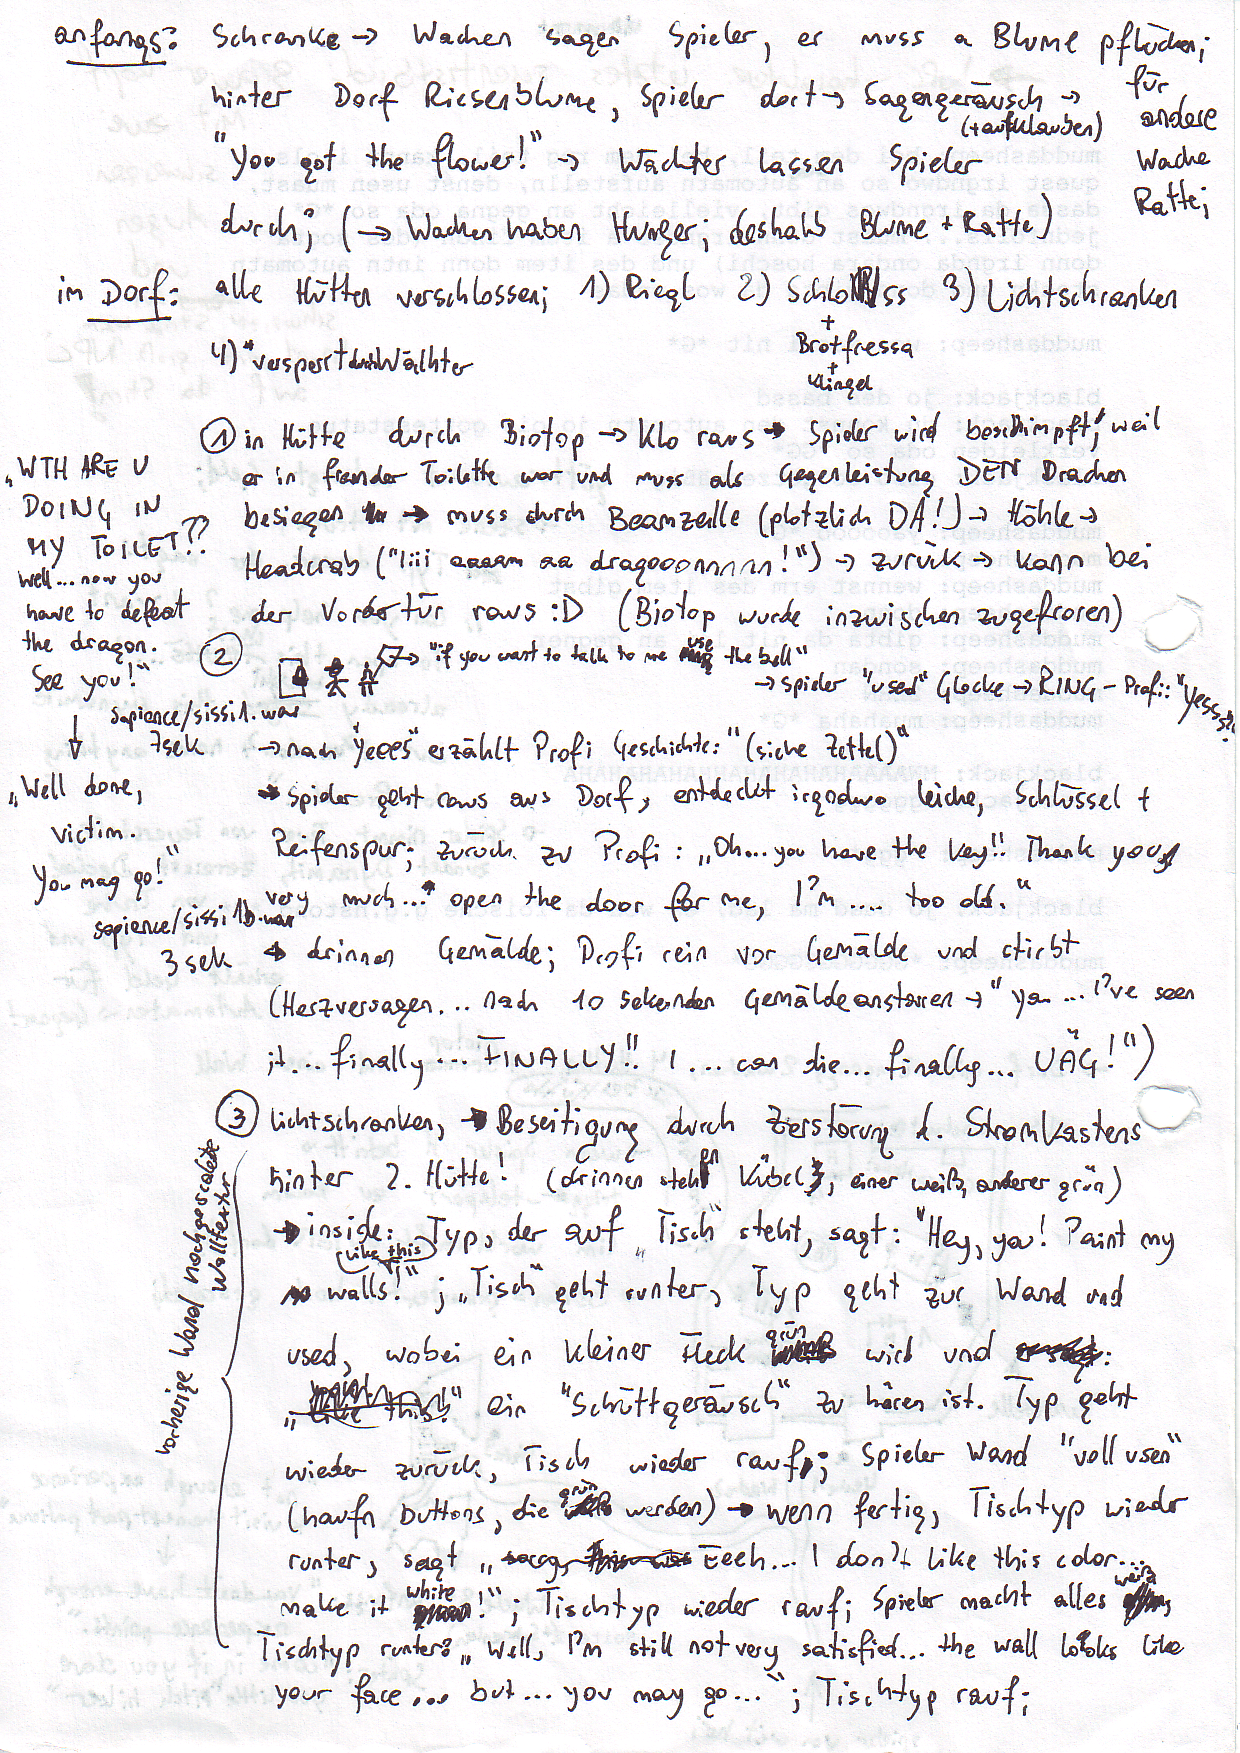 anfangs: Schranke → Wachen sagen Spieler, er muss a Blume pflücken;
hinter Dorf Riesenblume, Spieler dort → Sagengeräusch → für
(+aufklauben) andere
"You got the flower!" → Wächter lassen Spieler Wache
durch; (→ Wachen haben Hunger; deshalb Blume + Ratte) Ratte;
im Dorf: alle Hütten verschlossen; 1) Riegl 2) Schloss 3) Lichtschranken
+
Brotfressa
+
Klingel
4) versperrt durch Wächter
① in Hütte durch Biotop → Klo raus → Spieler wird beschimpft, weil
er in fremder Toilette war und muss als Gegenleistung DEN Drachen
besiegen → muss durch Beamzelle (plötzlich DA!) → Höhle →
Headcrab ("Iiii aaaam aa dragooonnnnn!") → zurück → kann bei
der Vordertür raus :D (Biotop wurde inzwischen zugefroren)
„WTH ARE U
DOING IN
MY TOILET??
Well... now you
have to defeat
the dragon.
See you!"
sapience/sissi1.wav
7sek
„Well done,
victim.
You may go!"
sapience/sissi1b.wav
3 sek
② → "if you want to talk to me use the bell"
→ Spieler "used" Glocke → RING - Profi: "Yesss?"
→ nach "Yeees" erzählt Profi Geschichte: "(siehe Zettel)"
→ Spieler geht raus aus Dorf, entdeckt irgendwo Leiche, Schlüssel +
Reifenspur; zurück zu Profi: „Oh... you have the key!! Thank you
very much... open the door for me, I'm .... too old."
→ drinnen Gemälde; Profi rein vor Gemälde und stirbt
(Herzversagen... nach 10 Sekunden Gemäldeanstarren → "ya... I've seen
it... finally... FINALLY!! I ... can die... finally... UÄG!")
③ Lichtschranken, → Beseitigung durch Zerstörung d. Stromkastens
hinter 2. Hütte! (drinnen stehen Kübel, einer weiß, anderer grün)
→ inside: Typ, der auf „Tisch" steht, sagt: "Hey, you! Paint my
like this
walls!"; „Tisch" geht runter, Typ geht zur Wand und
used, wobei ein kleiner Fleck grün wird und
ein "Schüttgeräusch" zu hören ist. Typ geht
wieder zurück, Tisch wieder rauf; Spieler Wand "voll usen"
(haufn buttons, die grün werden) → wenn fertig, Tischtyp wieder
runter, sagt „Eeeh... I don't like this color...
make it white!"; Tischtyp wieder rauf; Spieler macht alles weiß
Tischtyp runter: „Well, I'm still not very satisfied... the wall looks like
your face... but... you may go..."; Tischtyp rauf;
vorherige Wand nachgescalete
Walltextur